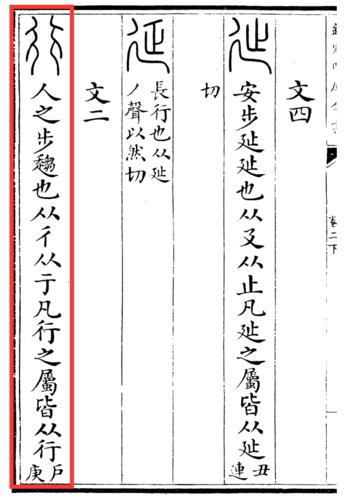 卷二下
文四
㢟 安步㢟㢟也从廴从止凡㢟之屬皆从㢟丑連
切
延 長行也从㢟
丿聲以然切
文二
行 人之步趨也从彳从亍凡行之屬皆从行戶庚